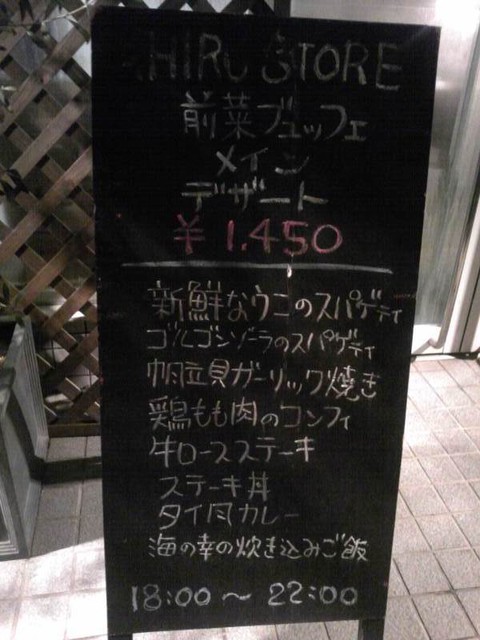 SHIRU STORE
前菜ブュッフェ
メイン
デザート
¥1.450
新鮮なウニのスパゲティ
ゴルゴンゾーラのスパゲティ
帆立貝ガーリック焼き
鶏もも肉のコンフィ
牛ロースステーキ
ステーキ丼
タイ風カレー
海の幸の炊き込みご飯
18:00～22:00